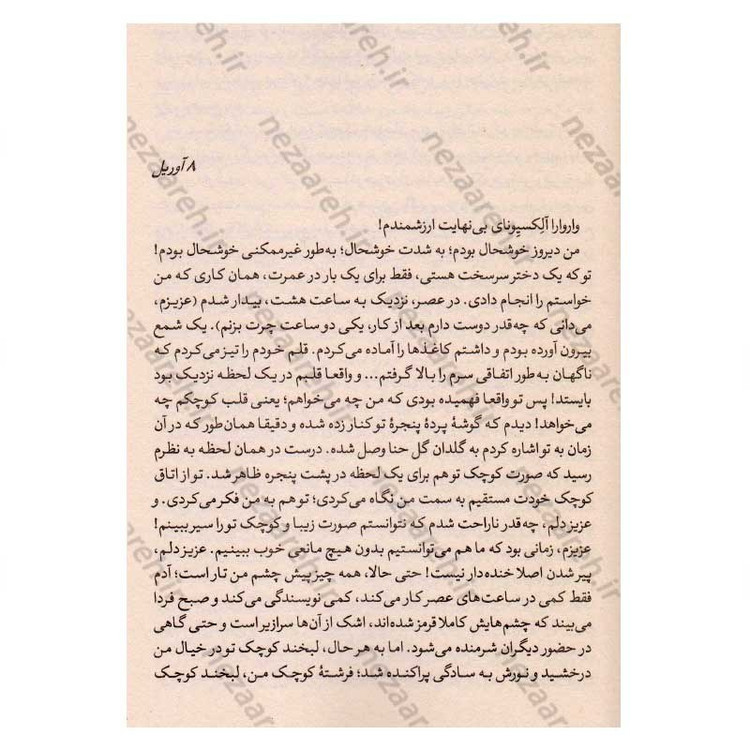 ۸ آوریل
واروارا آلِکسیِونای بی‌نهایت ارزشمندم!
من دیروز خوشحال بودم؛ به شدت خوشحال؛ به‌طور غیرممکنی خوشحال بودم!
تو که یک دختر سرسخت هستی، فقط برای یک بار در عمرت، همان کاری که من
خواستم را انجام دادی. در عصر، نزدیک به ساعت هشت، بیدار شدم (عزیزم،
می‌دانی که چه‌قدر دوست دارم بعد از کار، یکی دو ساعت چرت بزنم). یک شمع
بیرون آورده بودم و داشتم کاغذها را آماده می‌کردم. قلم خودم را تیز می‌کردم که
ناگهان به‌طور اتفاقی سرم را بالا گرفتم... و واقعا قلبم در یک لحظه نزدیک بود
بایستد! پس تو واقعا فهمیده بودی که من چه می‌خواهم؛ یعنی قلب کوچکم چه
می‌خواهد! دیدم که گوشهٔ پردهٔ پنجرهٔ تو کنار زده شده و دقیقا همان‌طور که در آن
زمان به تو اشاره کردم به گلدان گل حنا وصل شده. درست در همان لحظه به نظرم
رسید که صورت کوچک تو هم برای یک لحظه در پشت پنجره ظاهر شد. تو از اتاق
کوچک خودت مستقیم به سمت من نگاه می‌کردی؛ تو هم به من فکر می‌کردی. و
عزیز دلم، چه‌قدر ناراحت شدم که نتوانستم صورت زیبا و کوچک تو را سیر ببینم!
عزیزم، زمانی بود که ما هم می‌توانستیم بدون هیچ مانعی خوب ببینیم. عزیز دلم،
پیر شدن اصلا خنده‌دار نیست! حتی حالا، همه چیز پیش چشم من تار است؛ آدم
فقط کمی در ساعت‌های عصر کار می‌کند، کمی نویسندگی می‌کند و صبح فردا
می‌بیند که چشم‌هایش کاملا قرمز شده‌اند، اشک از آن‌ها سرازیر است و حتی گاهی
در حضور دیگران شرمنده می‌شود. اما به هر حال، لبخند کوچک تو در خیال من
درخشید و نورش به سادگی پراکنده شد؛ فرشتهٔ کوچک من، لبخند کوچک
nezaareh.ir